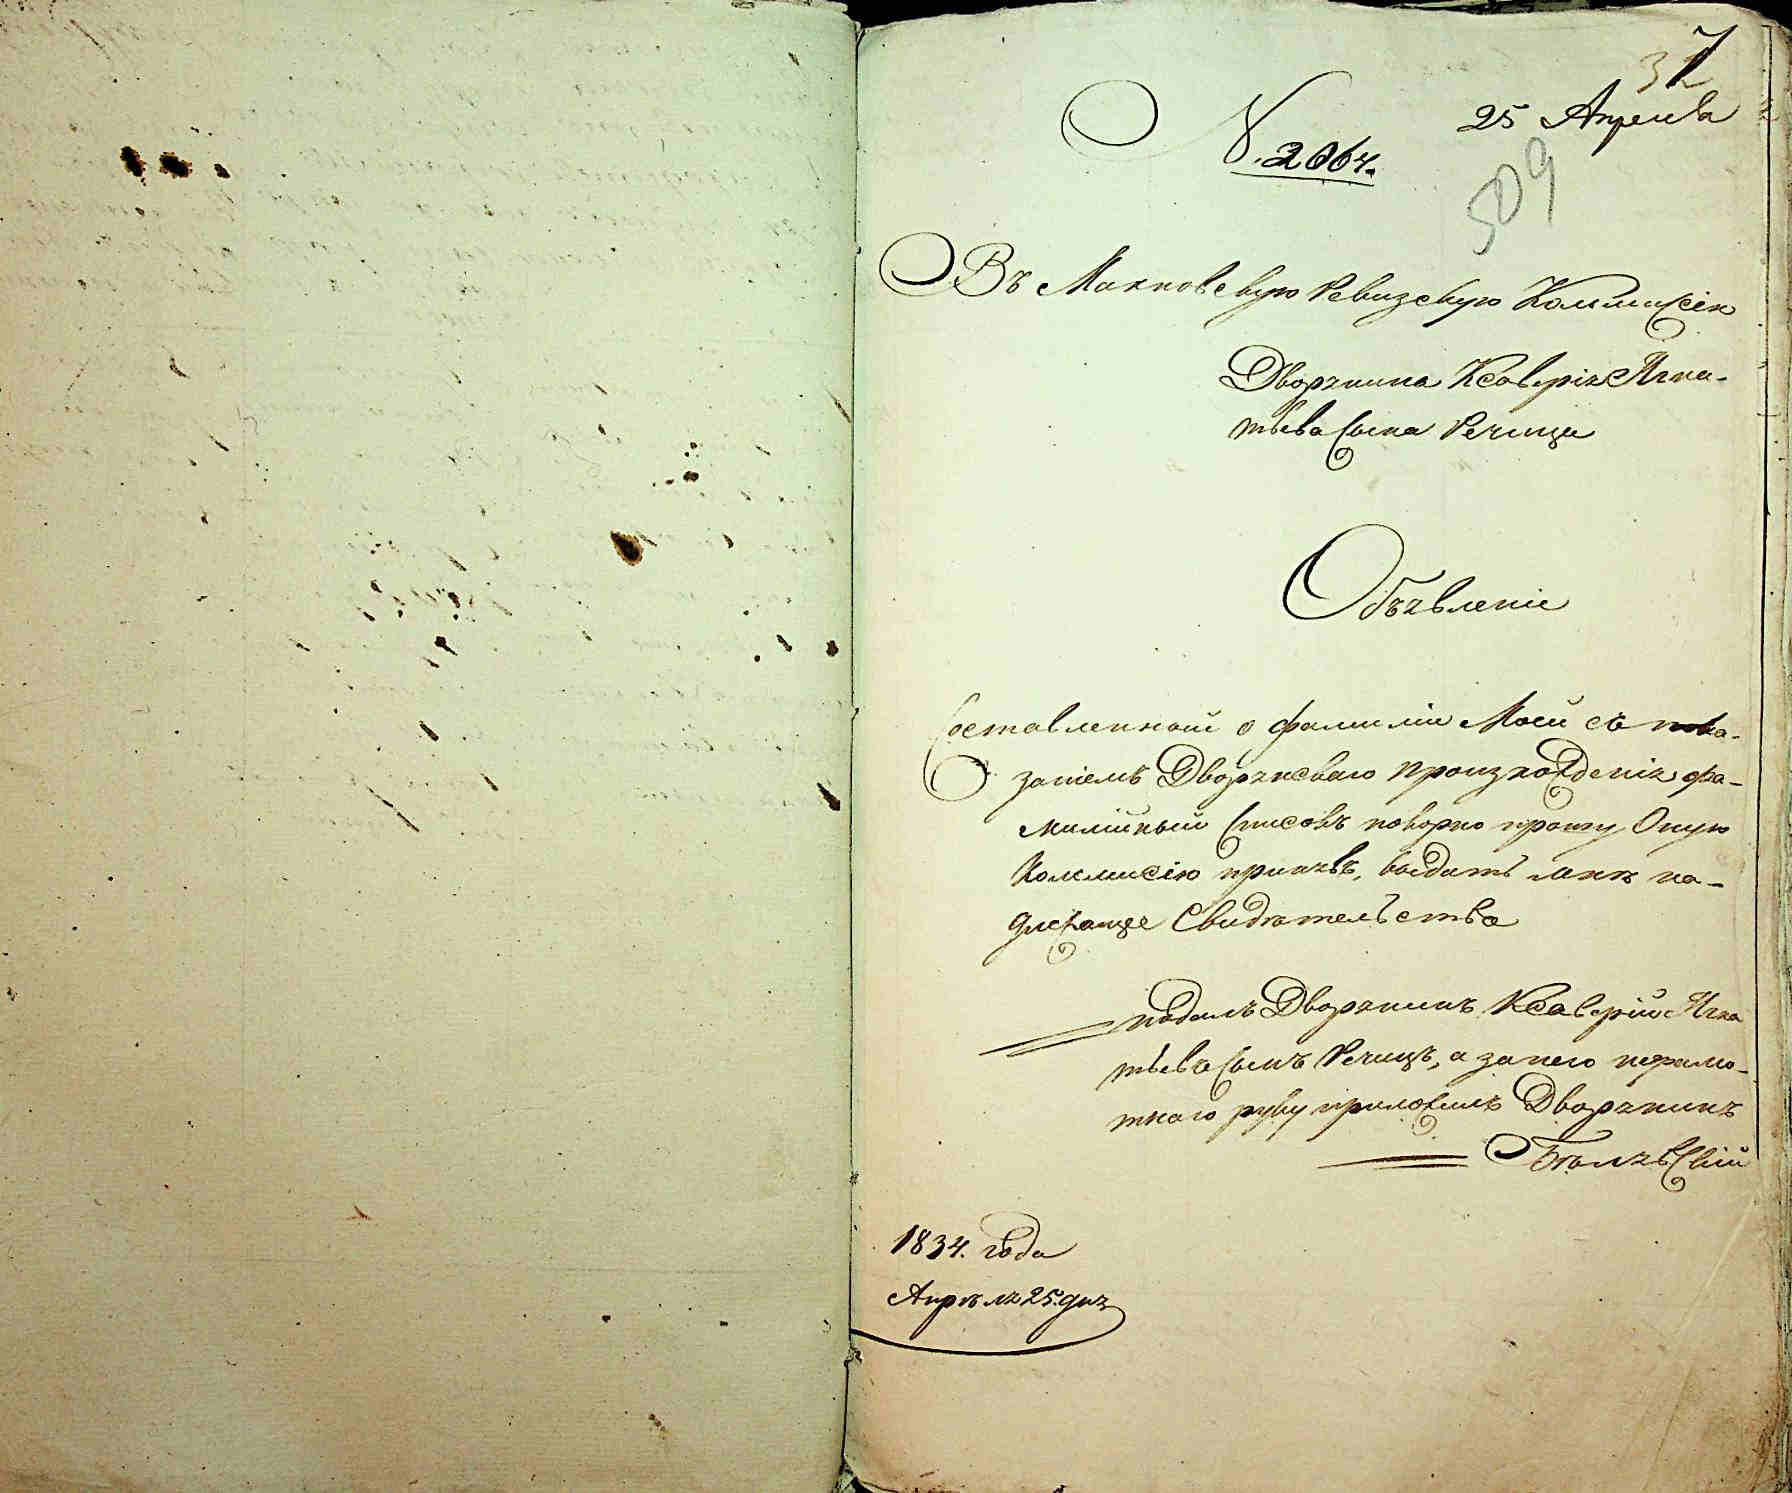 7
25 Апреля
N. 2064.
509
Въ Махновскую Ревизскую Коммисію
Дворянина Ксаверія Игна-
тьева Сына Речица
Объявленіе
Составленный о фамиліи Моей съ пока-
заніемъ Дворянскаго произхожденія фа-
милійный Списокъ покорно прошу Оную
Коммисію принявъ, выдать мнѣ на-
длежащее Свидѣтельство
подалъ Дворянинъ Ксаверій Игна
тьевъ Сынъ Речицъ, а за него неграмо-
тнаго руку приложилъ Дворянинъ
1834. года
Апрѣля 25. дня